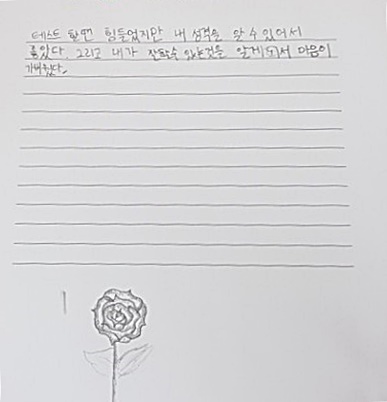 테스트 할땐 힘들었지만 내 성격을 알 수 있어서
좋았다. 그리고 내가 잘할수 있는것을 알게되서 마음이
가벼웠다.